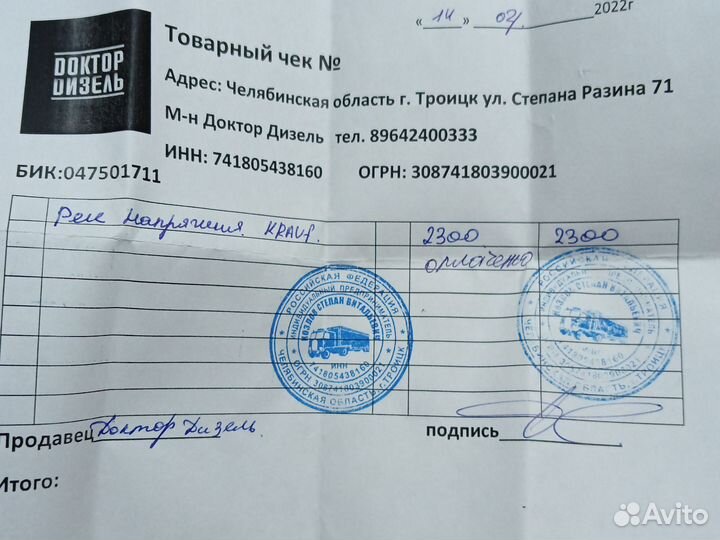 ДОКТОР
DИЗЕЛЬ
« 14 » 02 2022г
Товарный чек №
Адрес: Челябинская область г. Троицк ул. Степана Разина 71
М-н Доктор Дизель тел. 89642400333
ИНН: 741805438160 ОГРН: 308741803900021
БИК:047501711
Реле напряжения KRAUF. 2300 2300
оплачено
РОССИЙСКАЯ ФЕДЕРАЦИЯ
ИНДИВИДУАЛЬНЫЙ ПРЕДПРИНИМАТЕЛЬ
КОЗЛОВ СТЕПАН ВИТАЛЬЕВИЧ
ИНН
741805438160
ОГРН 308741803900021
ЧЕЛЯБИНСКАЯ ОБЛАСТЬ, Г.ТРОИЦК
Продавец Доктор Дизель подпись
Итого:
Avito